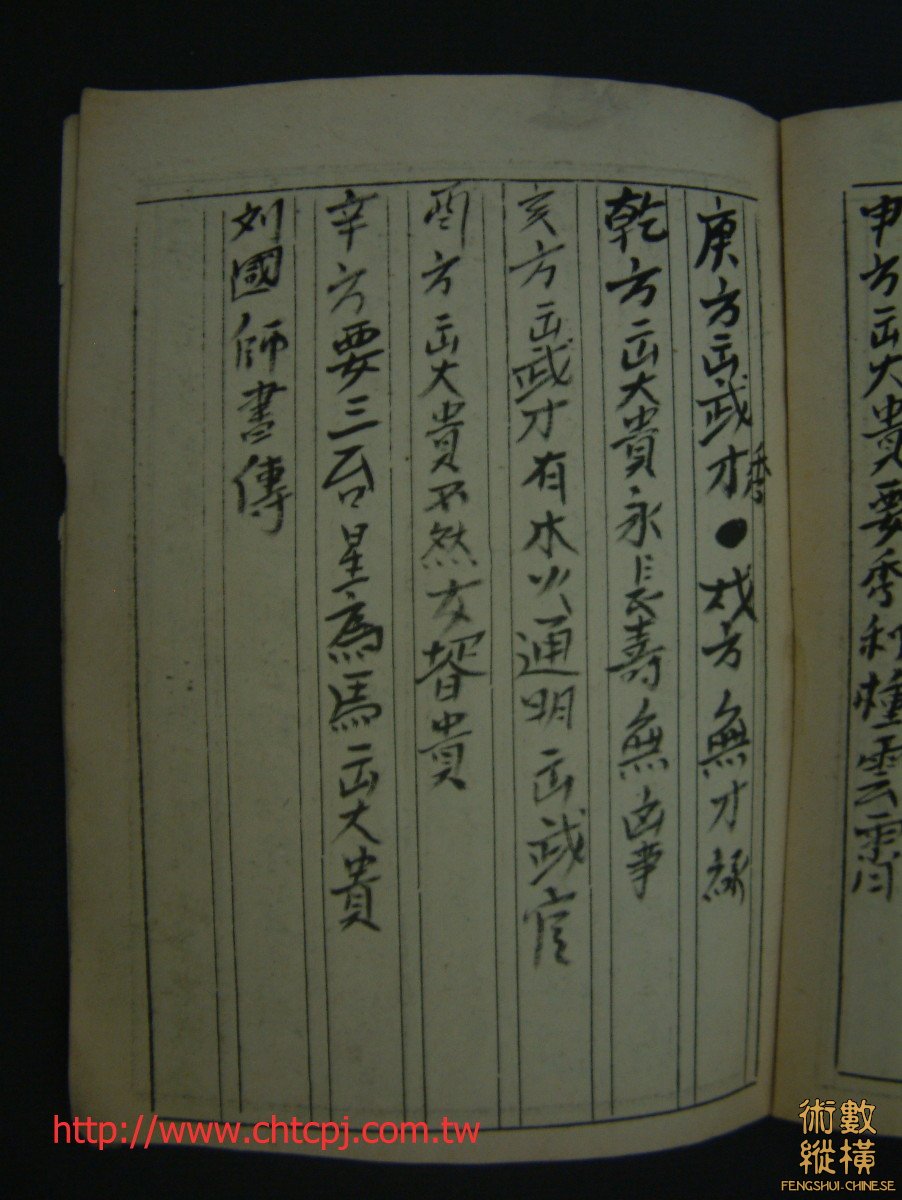 申方出大貴要秀利種雲霄
庚方出武才秀●戌方無才祿
乾方出大貴永長壽無凶事
亥方出武才有水火通明出武官
酉方出大貴不然女婿貴
辛方要三台星為馬出大貴
刘國師書傳
http://www.chtcpj.com.tw
術數縱橫
FENGSHUI-CHINESE